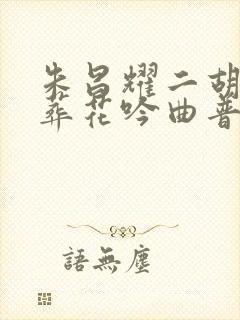 朱昌耀二胡
葬花吟曲普
語無塵